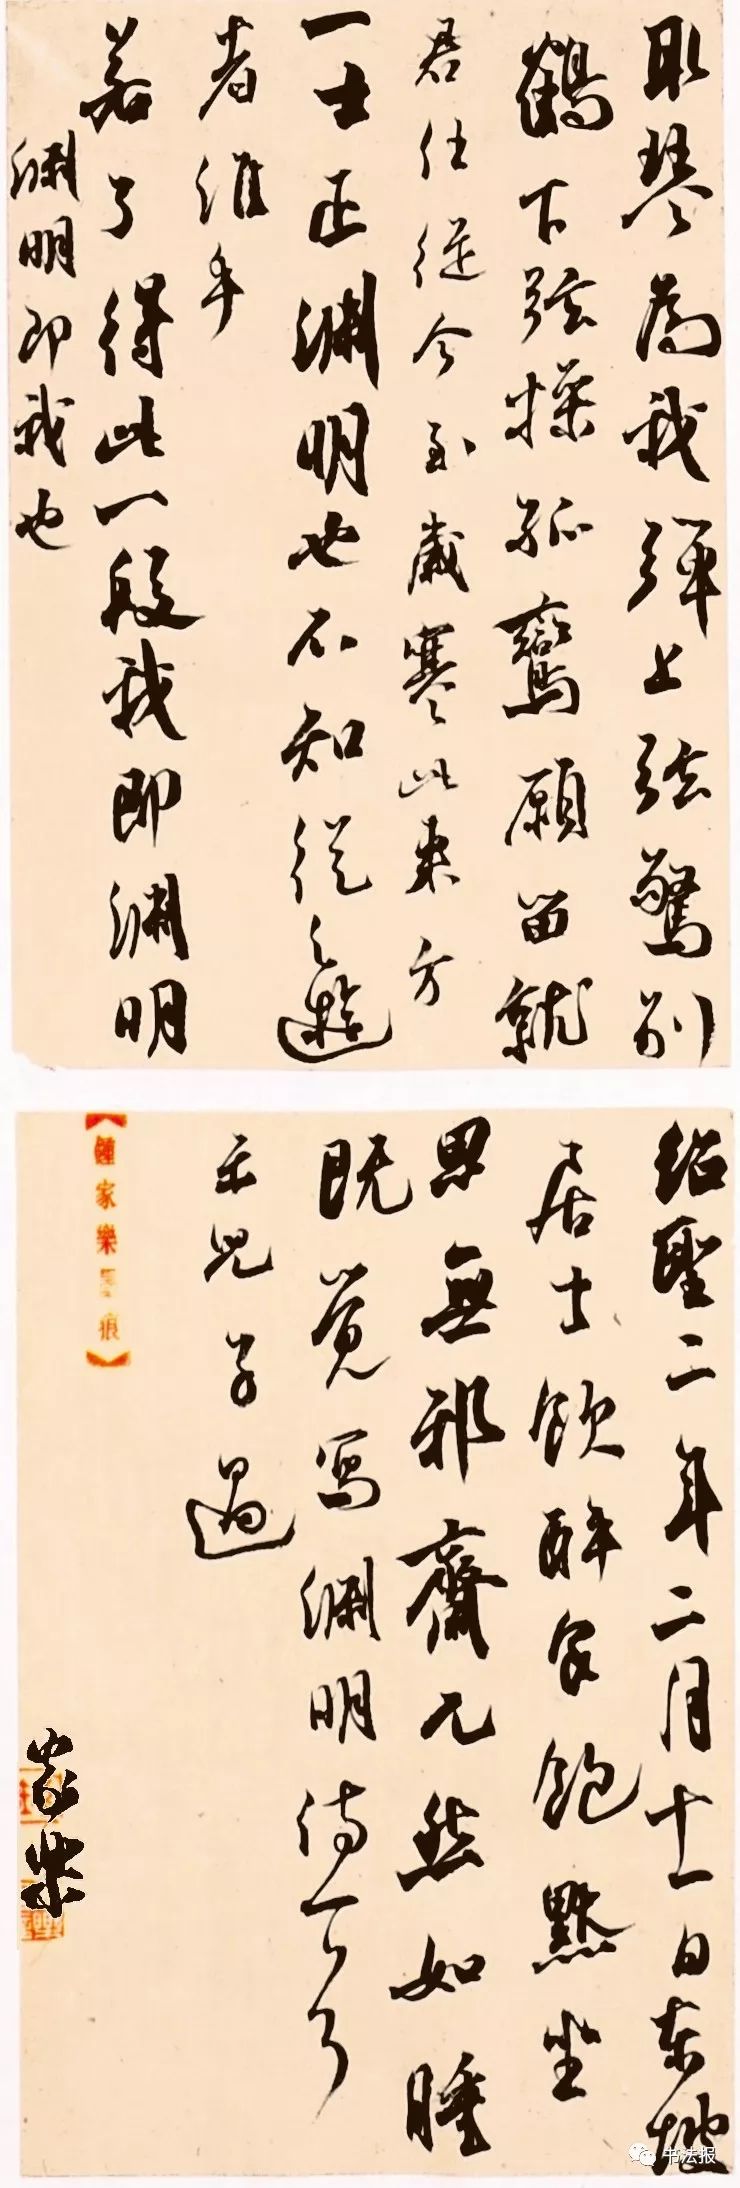 取琴为我弹上弦驚别
鶴下弦操孤鸞願留就
君住從今至歲寒此東方
一士正淵明也不知從之遊
者誰乎
若了得此一段我即淵明
淵明即我也
紹聖二年二月十一日東坡
居士飲醉食飽默坐
思無邪齋兀然如睡
既覺写淵明詩一首
示兒子過
鍾家樂墨痕
家樂
书法报